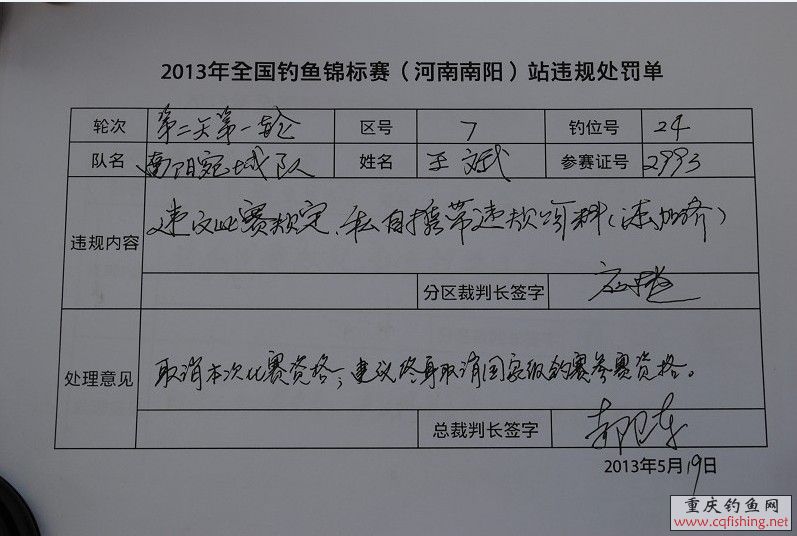 2013年全国钓鱼锦标赛（河南南阳）站违规处罚单
轮次 第二天第一轮 区号 7 钓位号 24
队名 南阳宛城队 姓名 王文武 参赛证号 2993
违规内容 违反比赛规定、私自携带违规饵料（添加剂）
分区裁判长签字
处理意见 取消本次比赛资格；建议终身取消国家级钓赛参赛资格。
总裁判长签字 郝卫东
2013年5月19日
重庆钓鱼网
www.cqfishing.net